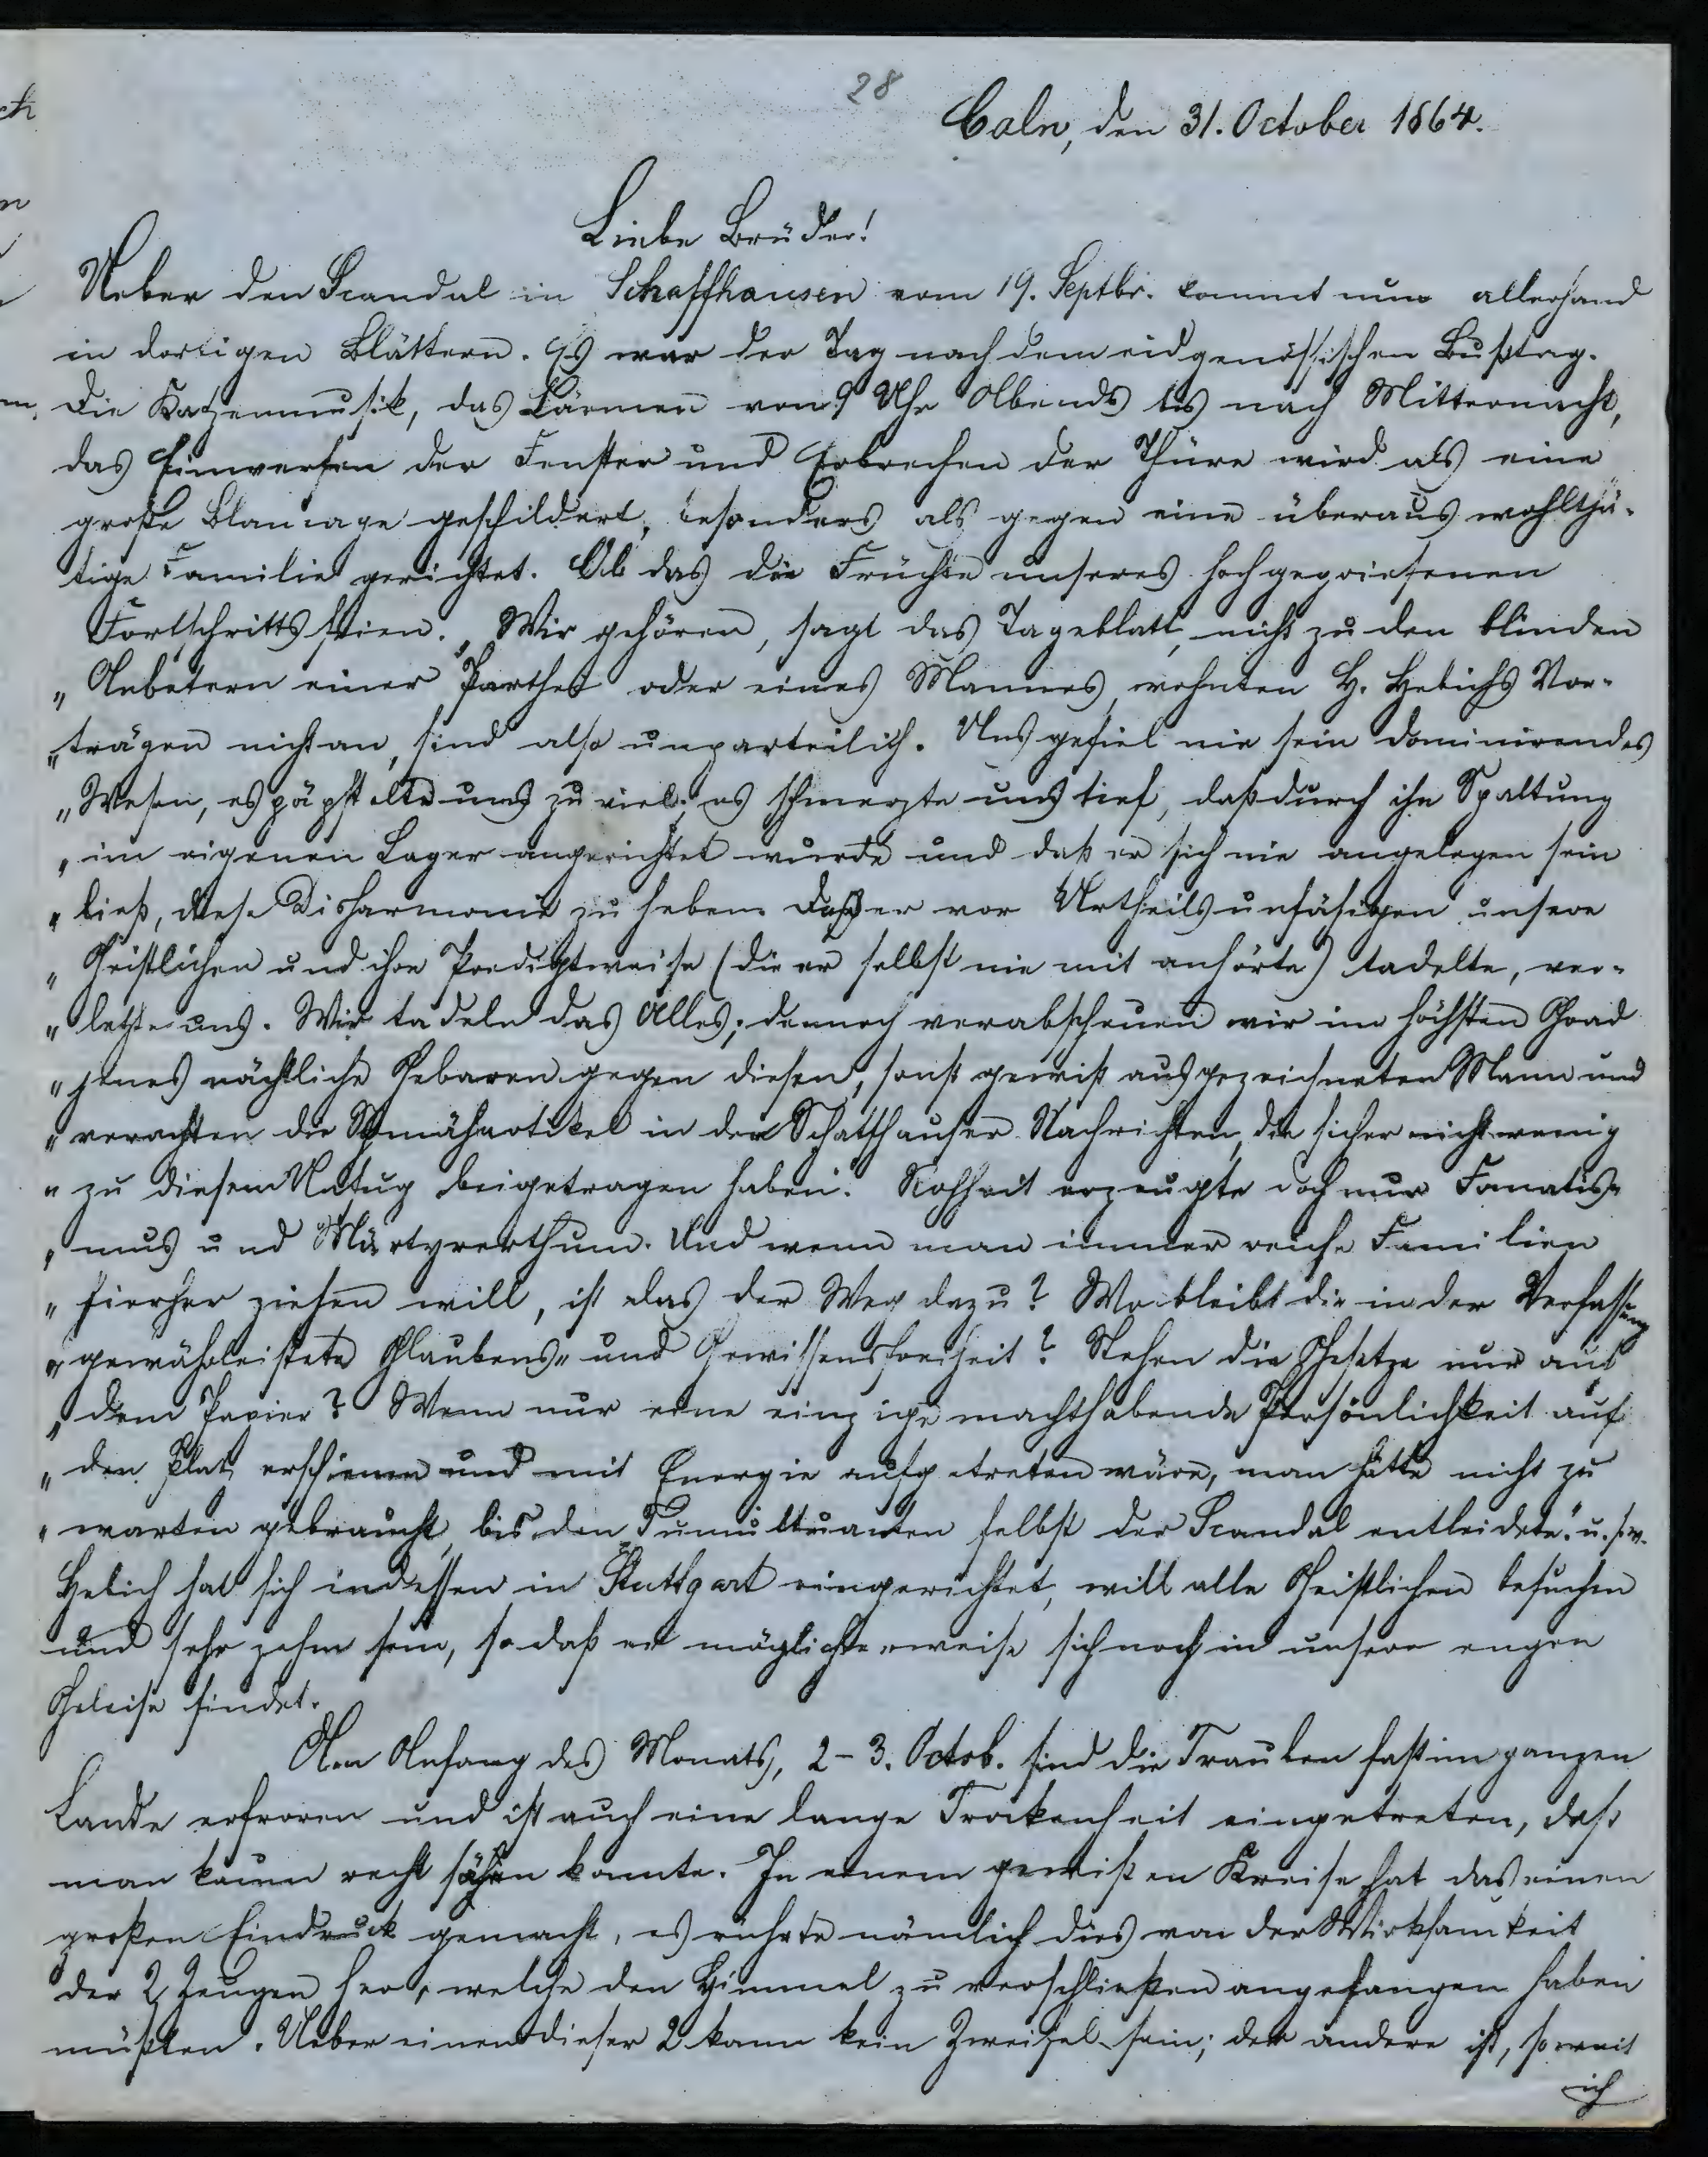 28
Calw, den 31. October 1864.
Liebe Brüder!
Ueber den Scandal in Schaffhausen vom 19. Septbr. kommt nun allerhand
in dortigen Blättern. Es war der Tag nach dem eidgenössischen Bußtag.
Die Katzenmusik, das Lärmen von 9 Uhr Abends bis nach Mitternacht,
das Einwerfen der Fenster und Erbrechen der Thüre wird als eine
große Blamage geschildert, besonders als gegen eine überaus wohlthä-
tige Familie gerichtet. Ob das die Früchte unseres hochgepriesenen
Fortschritts seien. „Wir gehören, sagt das Tageblatt, nicht zu den blinden
„Anbetern einer Parthei oder eines Mannes, wohnten H. Hebichs Vor-
„trägen nicht an, sind also unparteilich. Uns gefiel nie sein dominirendes
„Wesen, es päpstelte uns zu viel; es schmerzte uns tief, daß durch ihn Spaltung
„im eigenen Lager angerichtet wurde und daß er sich nie angelegen sein
„ließ, diese Disharmonie zu heben. Daß er vor Urtheilsunfähigen unsere
„Geistlichen und ihre Predigtweise (die er selbst nie mit anhörte) tadelte, ver-
„letzte uns. Wir tadeln das Alles; dennoch verabscheuen wir im höchsten Grad
„jenes nächtliche Gebaren gegen diesen, sonst gewiß ausgezeichneten Mann und
„verachten die Schmähartikel in den Schaffhauser Nachrichten, die sicher nicht wenig
„zu diesem Unfug beigetragen haben. Rohheit erzeugte doch nur Fanatis-
„mus und Märtyrerthum. Und wenn man immer reiche Familien
„hierher ziehen will, ist das der Weg dazu? Wo bleibt die in der Verfassung
„gewährleistete Glaubens- und Gewissensfreiheit? Stehen die Gesetze nur auf
„dem Papier? Wenn nur eine einzige machthabende Persönlichkeit auf
„den Platz erschienen und mit Energie aufgetreten wäre, man hätte nicht zu
„warten gebraucht, bis den Tumultuanten selbst der Scandal entleidete." u.s.w.
Hebich hat sich indessen in Stuttgart eingerichtet, will alle Geistlichen besuchen
und sehr zahm sein, so daß er möglicherweise sich noch in unsere engen
Geleise findet.
Am Anfang des Monats, 2-3. Octob. sind die Trauben fast im ganzen
Lande erfroren und ist auch eine lange Trockenheit eingetreten, daß
man kaum recht sähen konnte. In einem gewißen Kreise hat das einen
großen Eindruck gemacht, es rührte nämlich dies von der Wirksamkeit
der 2 Zeugen her, welche den Himmel zu verschließen angefangen haben
müßten. Ueber einen dieser 2 kann kein Zweifel sein; der andere ist, so weit
ich